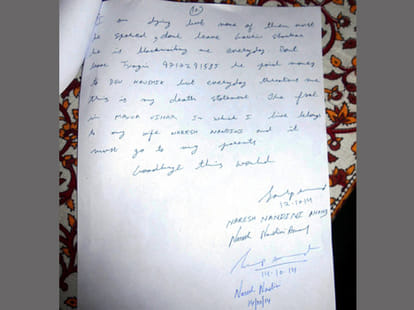 I am dying but none of them must
be spared, dont leave
he is blackmailing me everyday Dont
leave Tyagi he paid money
to DEV but everyday threatens me
this is my death statement The flat
in MAYUR VIHAR In which I live belongs
to my wife NARESH NANDINI and it
must go to my parents
Goodbye this world
12.10.14
NARESH NANDINI
Naresh Nandini
14.10.14
Naresh Nandini
14/10/14